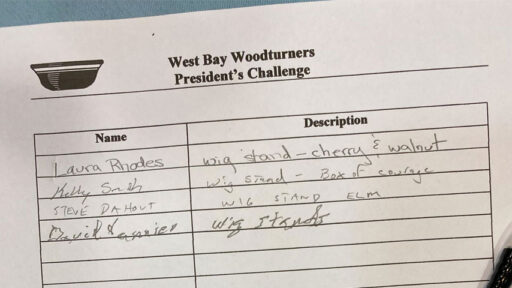 West Bay Woodturners
President's Challenge
Name Description
Laura Rhodes wig stand - cherry & walnut
Kelly Smith wig stand - Box of courage
STEVE DAHOUT WIG STAND ELM
David wig stands